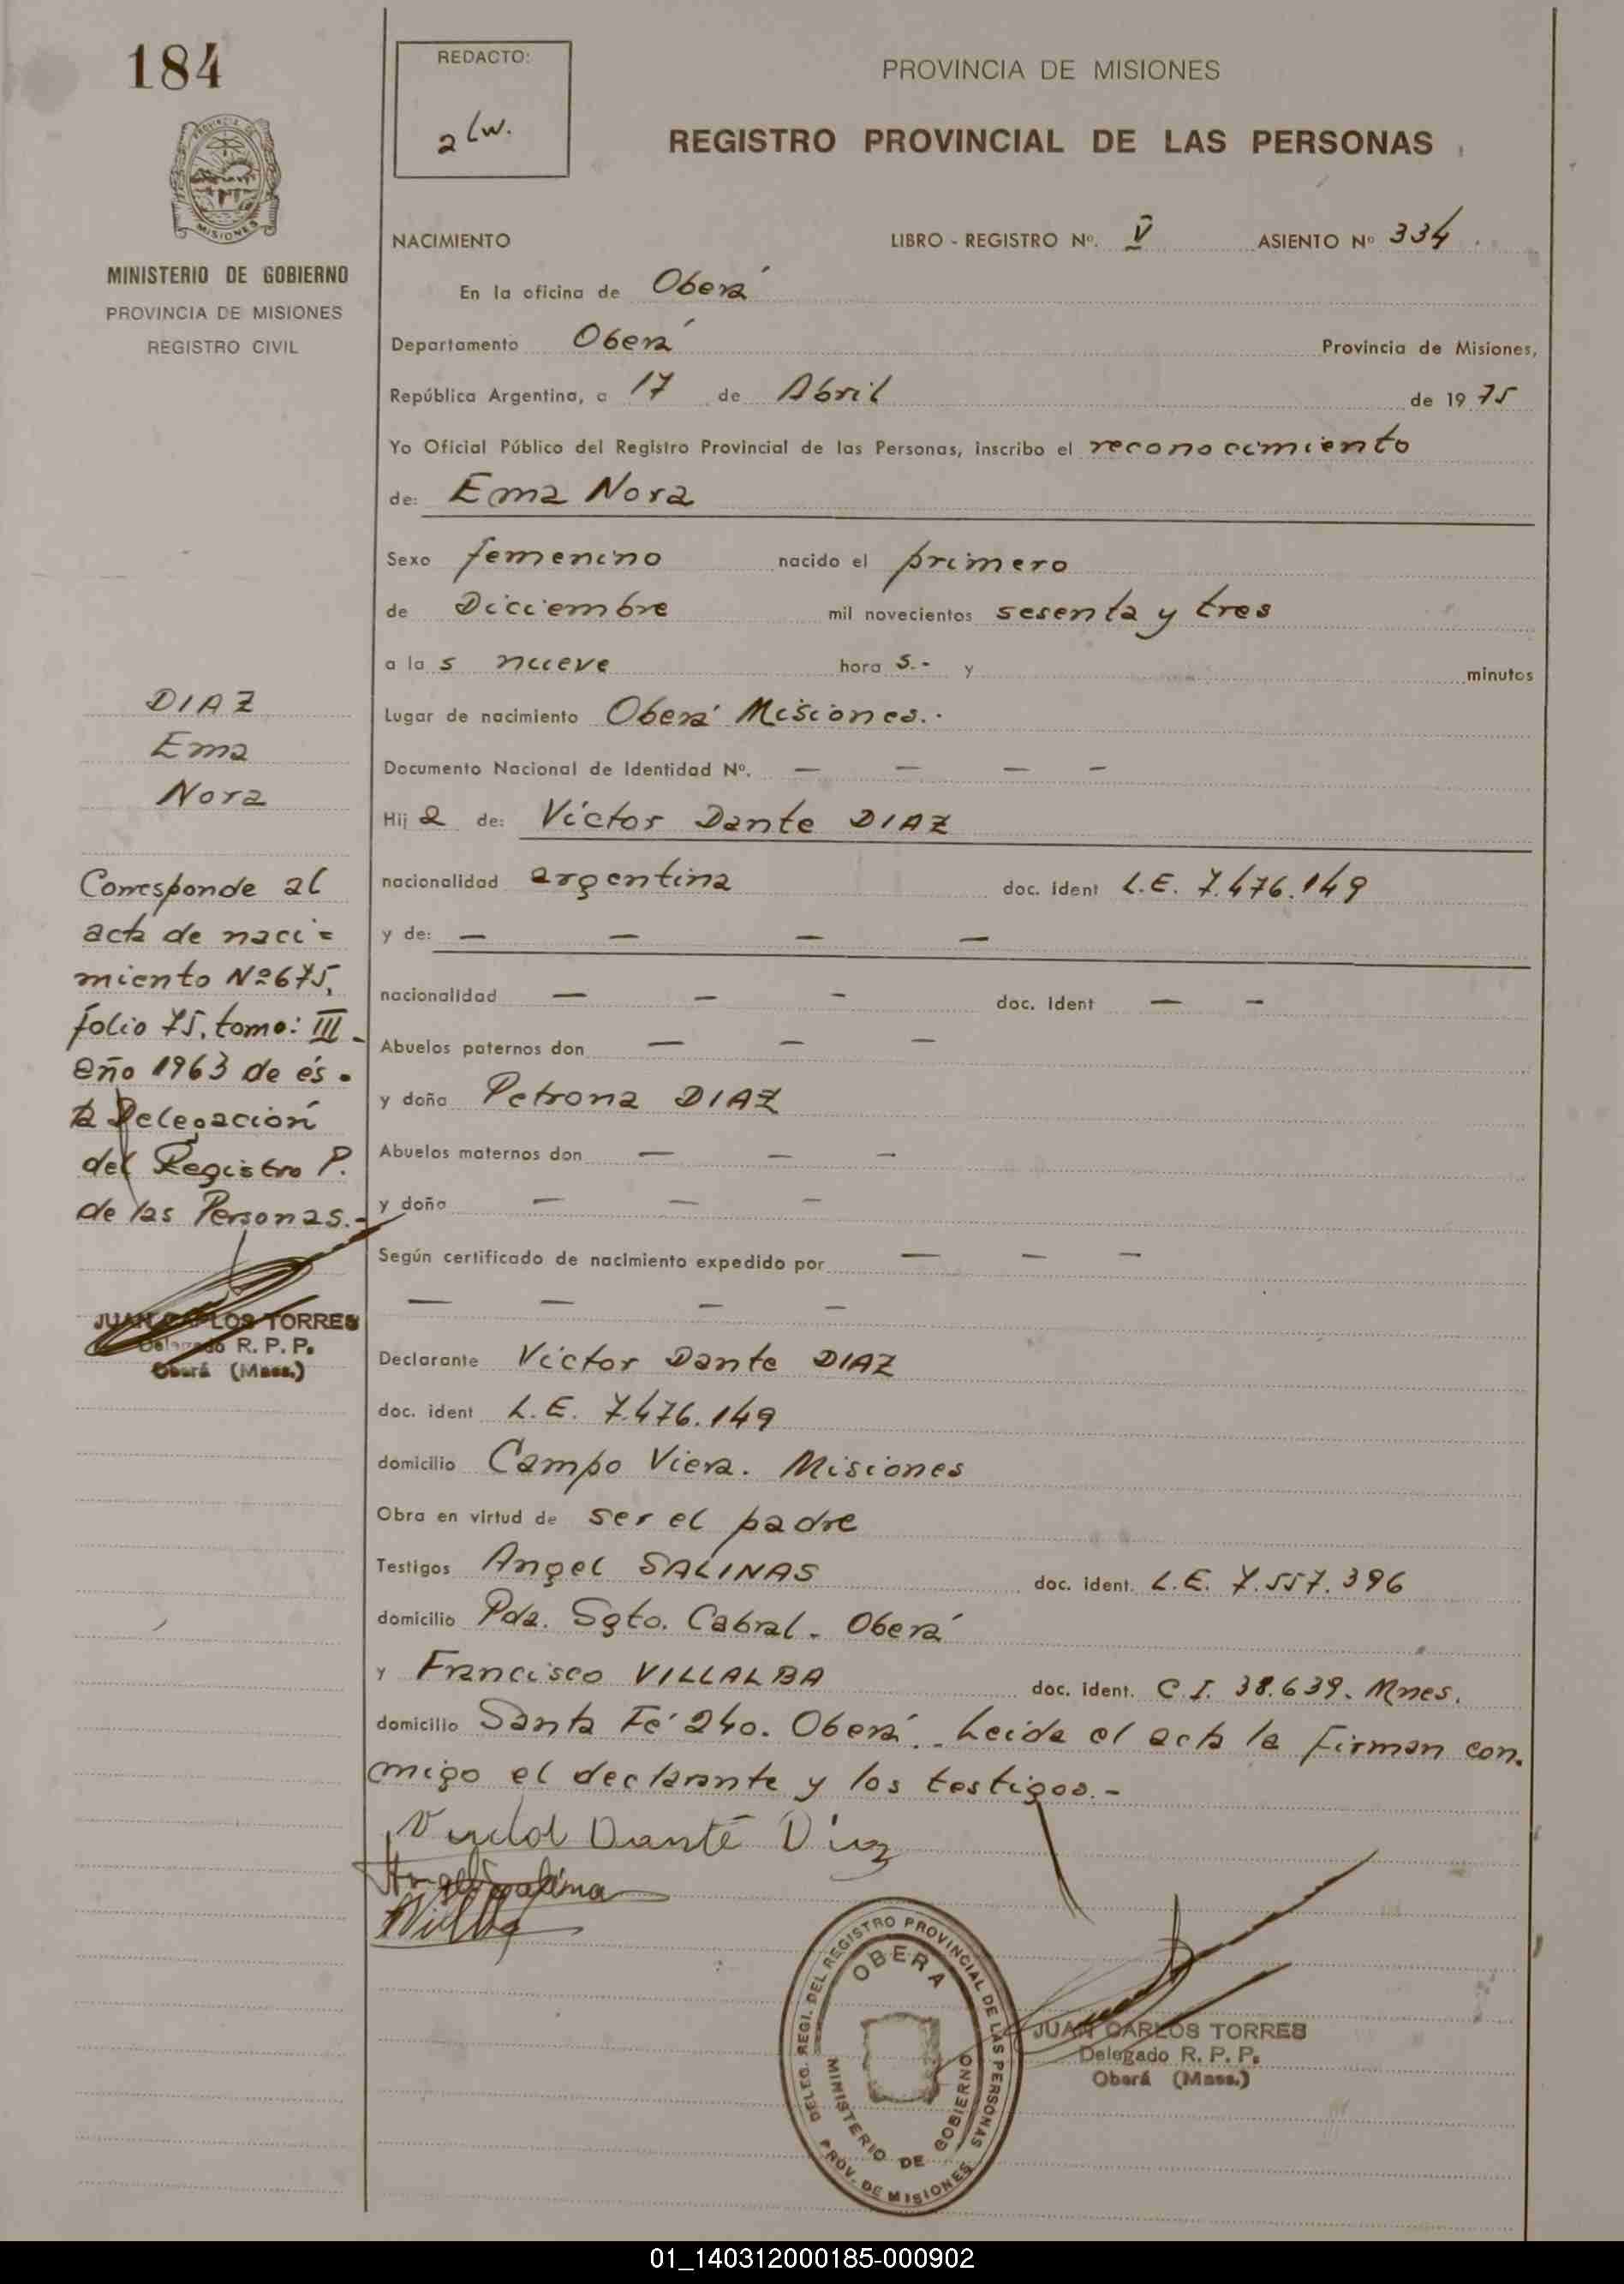 184
REDACTO:
alw.
PROVINCIA DE MISIONES
REGISTRO PROVINCIAL DE LAS PERSONAS
MISIONES
MINISTERIO DE GOBIERNO
PROVINCIA DE MISIONES
REGISTRO CIVIL
NACIMIENTO LIBRO - REGISTRO Nº. V ASIENTO Nº 334
En la oficina de Oberá
Departamento Oberá Provincia de Misiones,
República Argentina, a 17 de Abril de 1975
Yo Oficial Público del Registro Provincial de las Personas, inscribo el reconocimiento
de: Ema Nora
Sexo femenino nacido el primero
de Diciembre mil novecientos sesenta y tres
a las nueve horas.- y minutos
Lugar de nacimiento Oberá Misiones.-
Documento Nacional de Identidad Nº. — — — —
Hija de: Victor Dante DIAZ
nacionalidad argentina doc. ident L.E. 7.476.149
y de: — — — —
nacionalidad — — — doc. Ident — —
Abuelos paternos don — — —
y doña Petrona DIAZ
Abuelos maternos don — — —
y doña — — —
Según certificado de nacimiento expedido por — — —
— — — —
Declarante Victor Dante DIAZ
doc. ident L.E. 7.476.149
domicilio Campo Viera. Misiones
Obra en virtud de ser el padre
Testigos Angel SALINAS doc. ident. L.E. 7.557.396
domicilio Pda. Sgto. Cabral - Oberá
y Francisco VILLALBA doc. ident. C.I. 38.639. Mnes.
domicilio Santa Fé 240. Oberá.- Leida el acta la firman con-
migo el declarante y los testigos.-
DIAZ
Ema
Nora
Corresponde al
acta de naci=
miento Nº 675,
folio 75, tomo: III-
año 1963 de és-
ta Delegación
del Registro P.
de las Personas.-
JUAN CARLOS TORRES
Delegado R. P. P.
Oberá (Mnes.)
Victor Dante Diaz
Angel Salina
DELEG. REGI. DEL REGISTRO PROVINCIAL DE LAS PERSONAS
OBERA
MINISTERIO DE GOBIERNO
PROV. DE MISIONES
JUAN CARLOS TORRES
Delegado R. P. P.
Oberá (Mnes.)
01_140312000185-000902